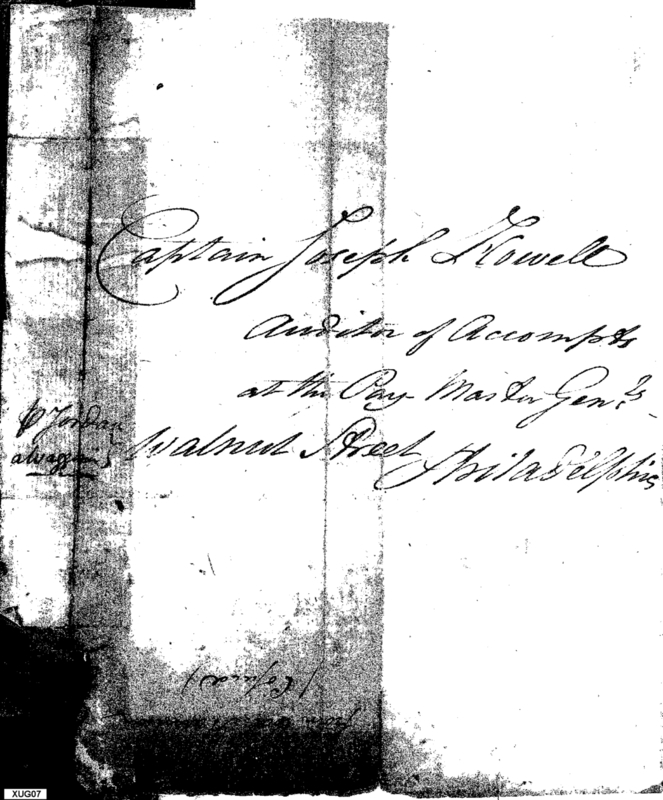 Captain Joseph Howell
Auditor of Accompts
at the Pay Master Gen.ls
Walnut Street Philadelphia
Jordan
(Copied)
XUG07